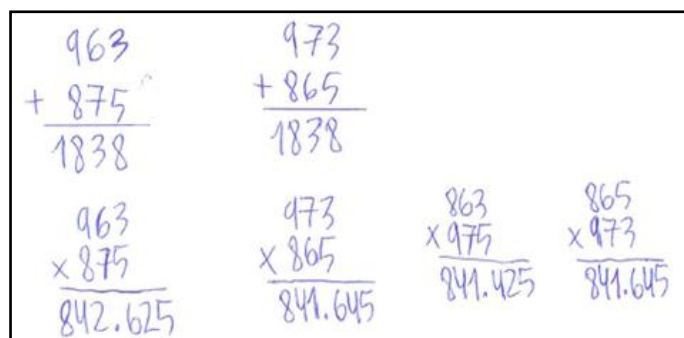 963
+ 875
1838
973
+ 865
1838
963
x 875
842.625
973
x 865
841.645
863
x 975
841.425
865
x 973
841.645